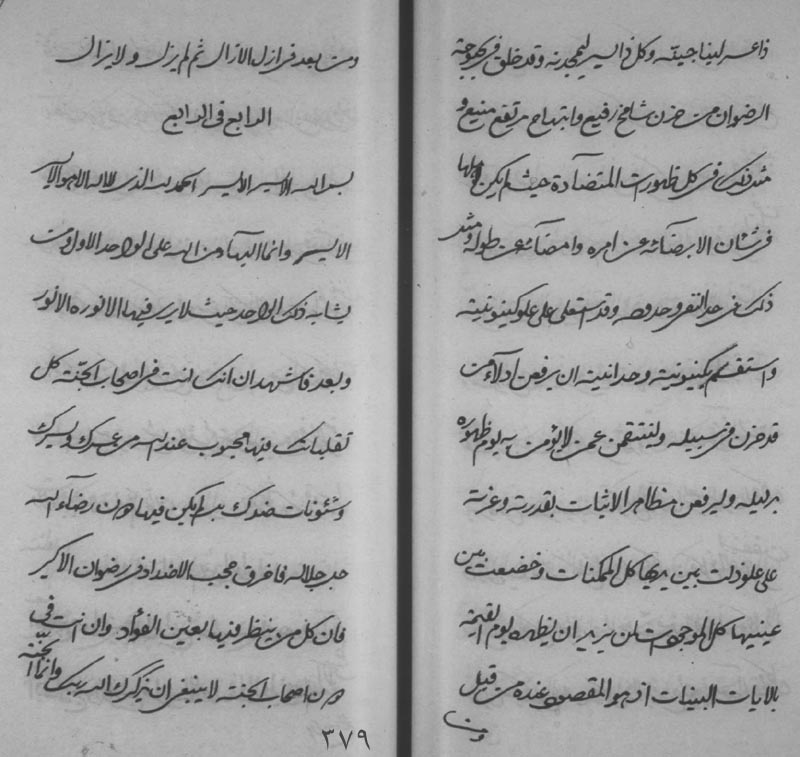 ذا عسر ليناجيته وكل ذا ليسر ليمجدنه وقد خلق في بحبوحة
الرضوان من حزن شامخ رفيع وابتهاج مرتفع منيع و
مثل ذلك في كل ظهورات المتضادة حيث لم يكن لها
من شأن الا برضائه عن امره وامضائه عن طوله ومثل
ذلك في حد النفي وحدوده وقد استعلى على علو كينونيته
واستقسم بكينونيته وحدانيته ان يرفعن ادلاء من
قد حزن في سبيله ولينتقمن عمن لا يؤمن به يوم ظهوره
بدليله وليرفعن مظاهر الاثبات بقدرته وعزته
على علو ذلت بين يديها كل الممكنات وخضعت بين
عينيها كل الموجودات لمن يريد ان يظهره يوم القيمة
بالايات البينات اذ هو المقصود عنده من قبل
ومن
ومن بعد في ازل الازال ثم لم يزل ولا يزال
الرابع في الرابع
بسم الله الايسر الايسر الحمد لله الذي لا اله الا هو الايسر
الايسر وانما البهاء من الله على الواحد الاول ومن
يشابه ذلك الواحد حيث لا يرى فيها الا نوره الانور
وبعد فاشهد ان انك انت في اصحاب الجنة كل
تقلباتك فيها محبوب عند الله من عسرك ويسرك
وشئونات ضدك بما لم يكن فيها من رضاء الله
جل جلاله فاخرق حجب الاضداد في رضوان الاكبر
فان كل من ينظر فيها بعين الفؤاد وان انت في الجنة
من اصحاب الجنة لا ينبغي ان يذكرك الا ربك وانما
٣٧٩